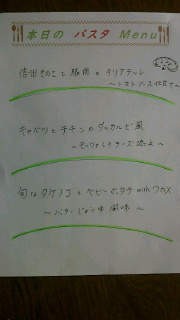 本日の パスタ Menu
信州きのこと豚肉のタリアテッレ
～トマトソース仕立て～
キャベツとチキンのダッカルビ風
～モッツァレラチーズ添え～
旬なタケノコとベビーホタテwithワカメ
～バターじょうゆ風味～